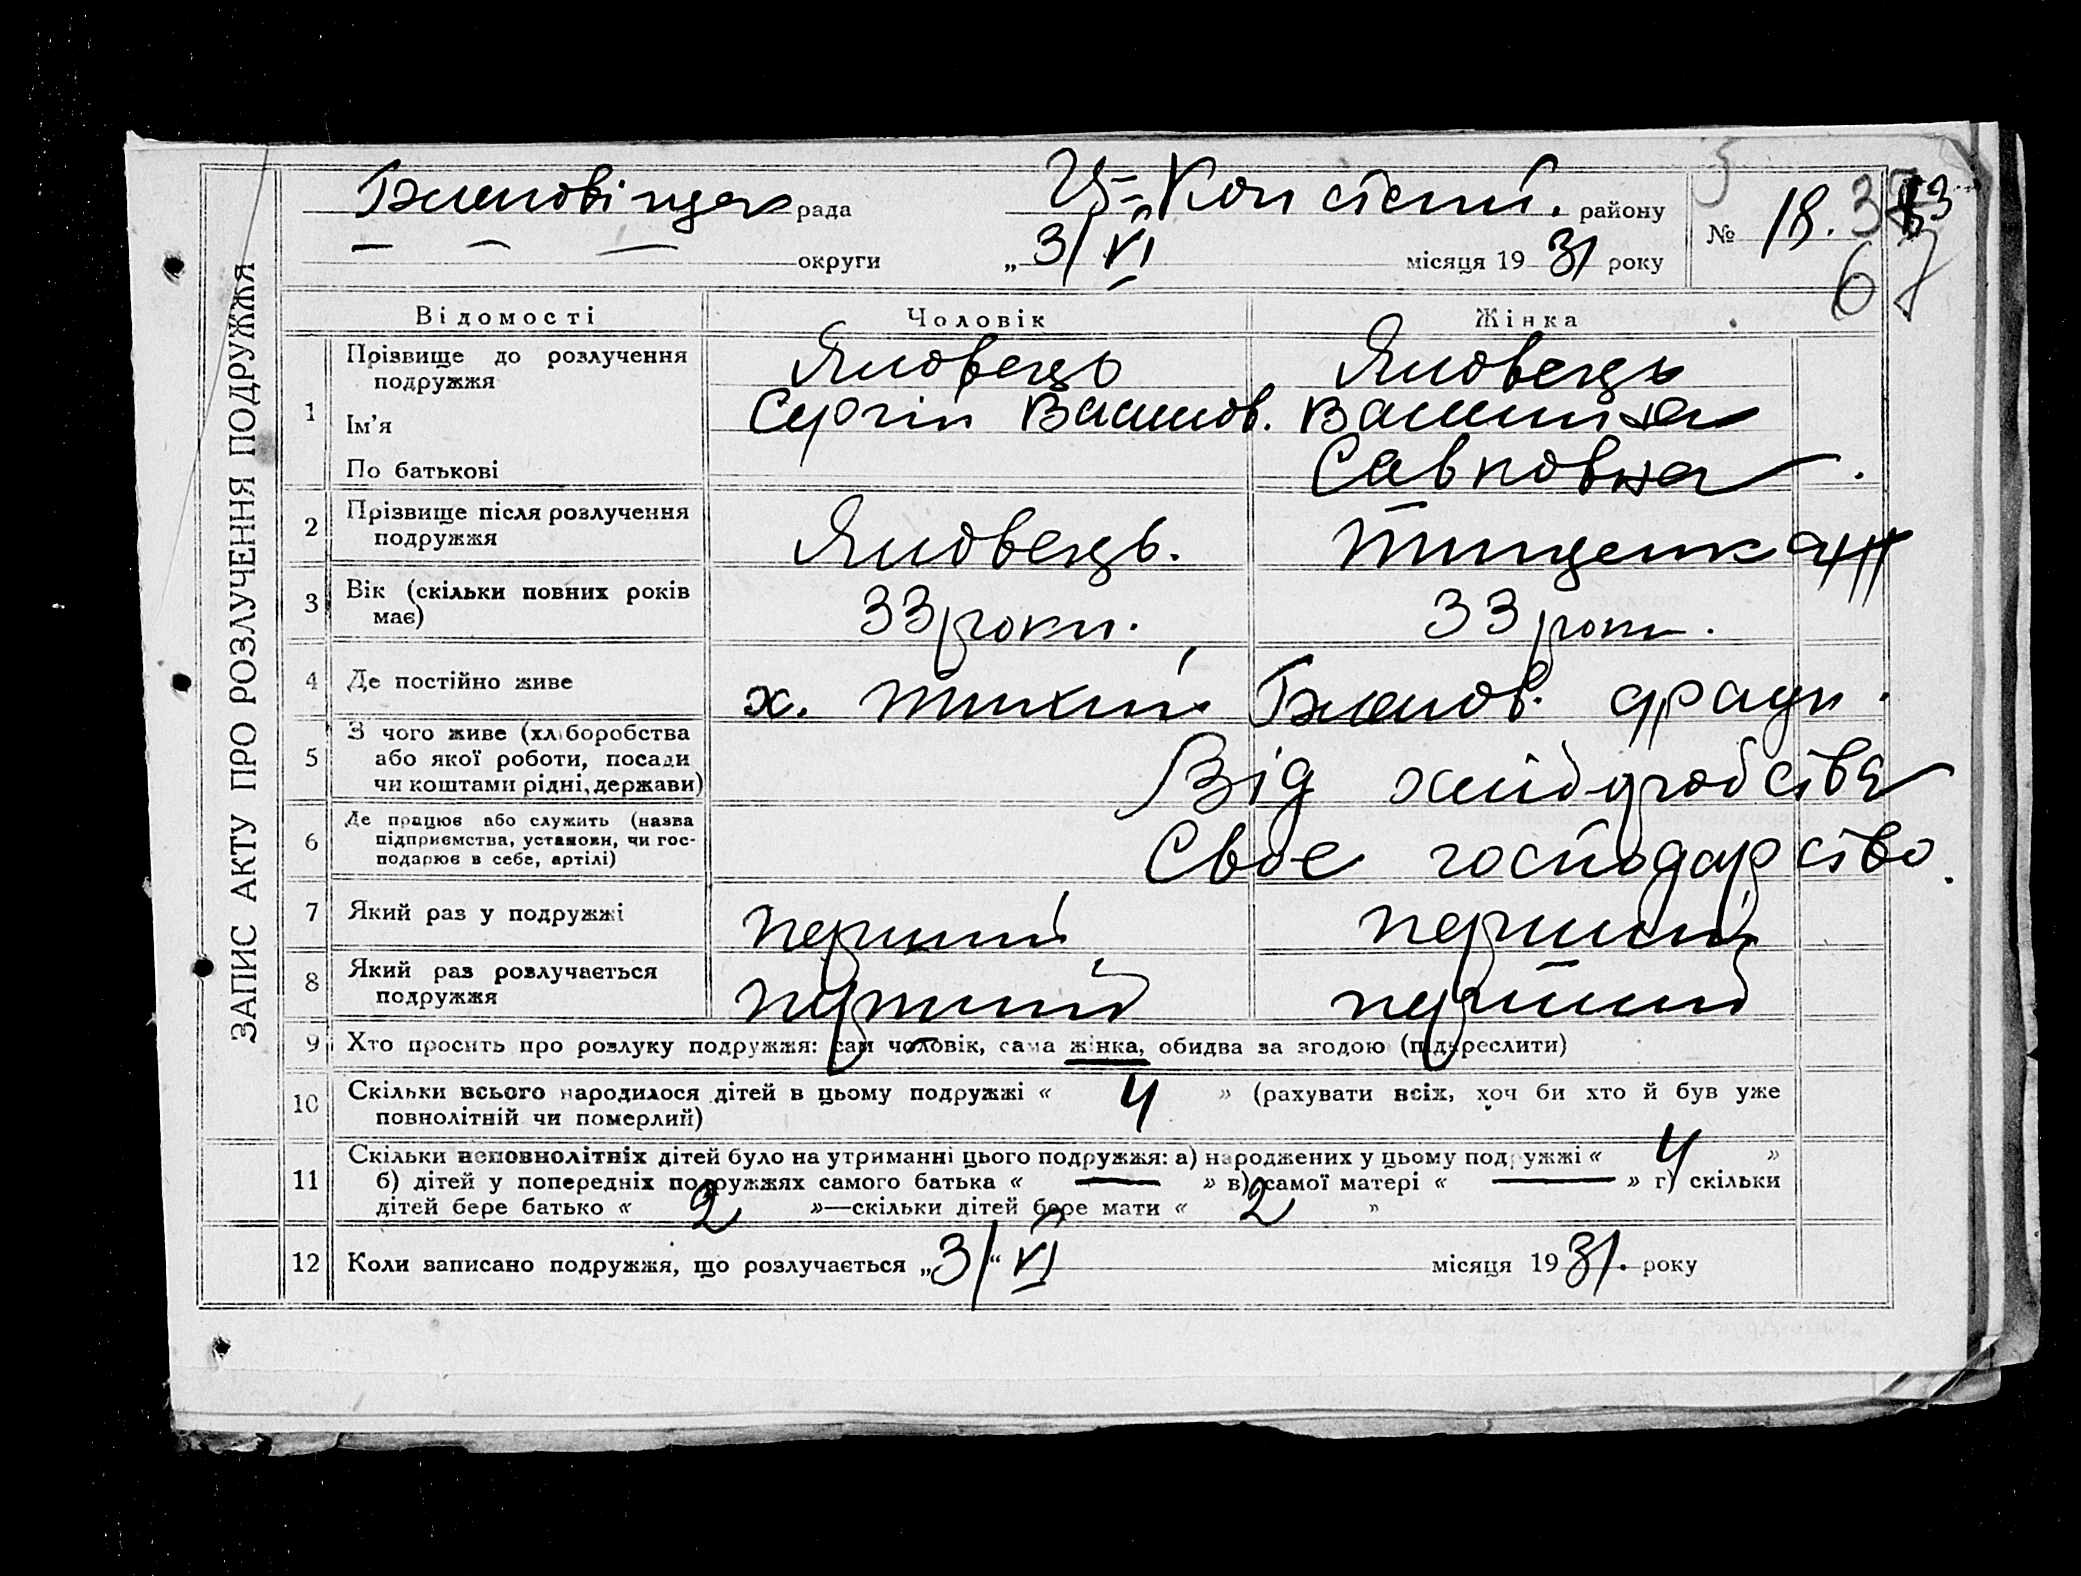 ЗАПИС АКТУ ПРО РОЗЛУЧЕННЯ ПОДРУЖЖЯ
рада району
№ 18.
округи „3/VI місяця 1931 року
67
Відомості Чоловік Жінка
1 Прізвище до розлучення подружжя Яловець Яловець
Ім’я Сергій Васильов. Василина
По батькові Савковна.
2 Прізвище після розлучення подружжя Яловець. Тищенко
3 Вік (скільки повних років має) 33 роки. 33 роки.
4 Де постійно живе х. Тихий
5 З чого живе (хліборобства
або якої роботи, посади
чи коштами рідні, держави) Від хліборобства
6 Де працює або служить (назва
підприємства, установи, чи гос-
подарює в себе, артілі) Своє господарство.
7 Який раз у подружжі перший перший
8 Який раз розлучається подружжя перший перший
9 Хто просить про розлуку подружжя: сам чоловік, сама жінка, обидва за згодою (підкреслити)
10 Скільки всього народилося дітей в цьому подружжі « 4 » (рахувати всіх, хоч би хто й був уже
повнолітній чи померлий)
11 Скільки неповнолітніх дітей було на утриманні цього подружжя: а) народжених у цьому подружжі « 4 »
б) дітей у попередніх подружжях самого батька « — » в) самої матері « — » г) скільки
дітей бере батько « 2 »—скільки дітей бере мати « 2 »
12 Коли записано подружжя, що розлучається „3/“ VI місяця 1931. року